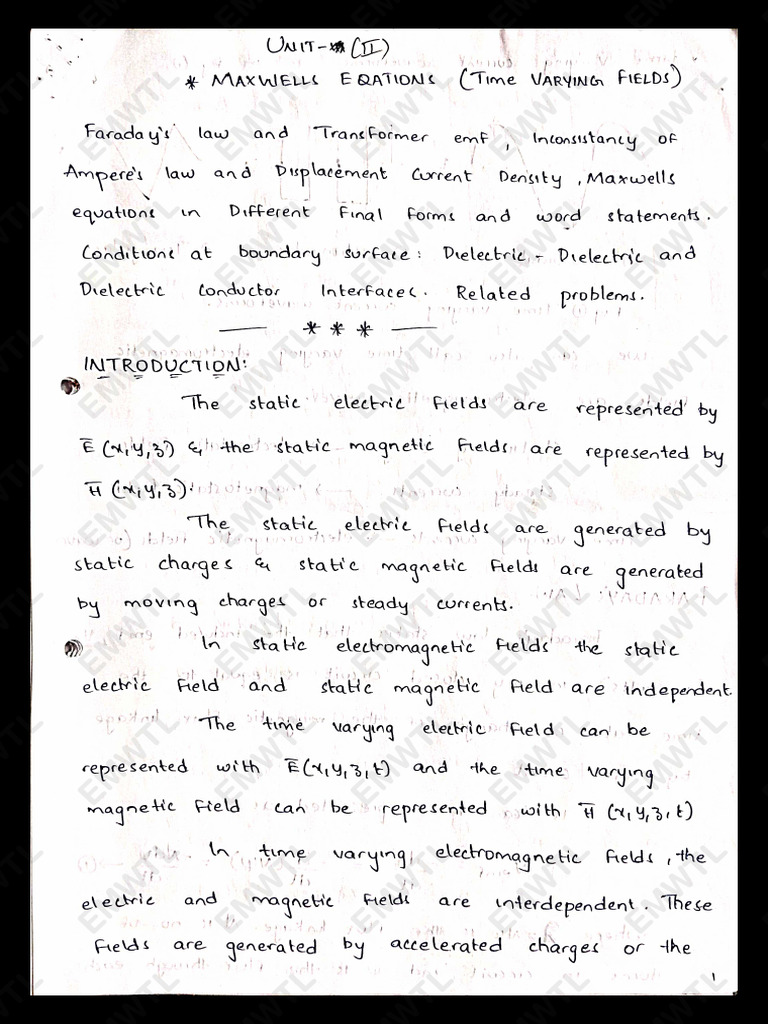 UNIT- (II)
* MAXWELLS EQATIONS (TIME VARYING FIELDS)
Faraday's law and Transformer emf, Inconsistancy of
Ampere's law and Displacement Current Density, Maxwells
equations in Different Final Forms and word statements.
Conditions at boundary surface: Dielectric - Dielectric and
Dielectric Conductor Interfaces. Related problems.
— * * * —
INTRODUCTION:
The static electric fields are represented by
E̅ (x,y,z) & the static magnetic fields are represented by
H̅ (x,y,z).
The static electric fields are generated by
static charges & static magnetic fields are generated
by moving charges or steady currents.
In static electromagnetic fields the static
electric field and static magnetic field are independent.
The time varying electric field can be
represented with E̅(x,y,z,t) and the time varying
magnetic field can be represented with H̅ (x,y,z,t)
In time varying electromagnetic fields, the
electric and magnetic fields are interdependent. These
fields are generated by accelerated charges or the
1
EMWTL